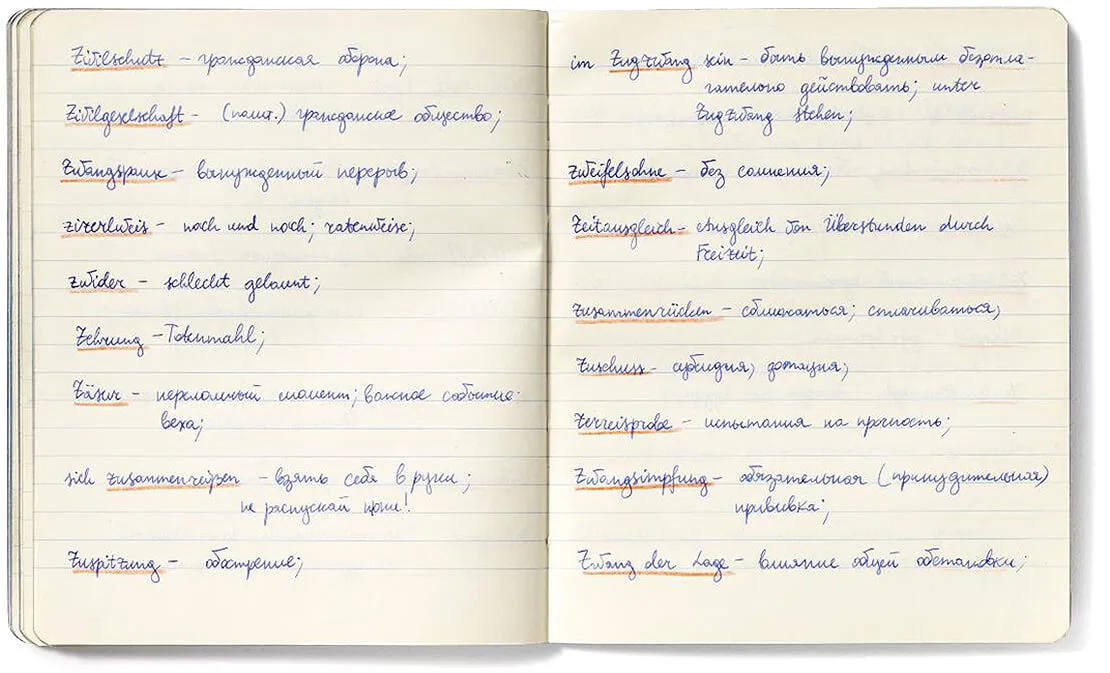 Zivilschutz – гражданская оборона;
Zivilgeselschaft – (полит.) гражданское общество;
Zwangspause – вынужденный перерыв;
zizerlweis – nach und nach; ratenweise;
zwider – schlecht gelaunt;
Zehrung – Totenmahl;
Zäsur – переломный момент; важное событие;
веха;
sich zusammenreißen – взять себя в руки;
не распускай нюни!
Zuspitzung – обострение;
im Zugzwang sein – быть вынужденным безотла-
гательно действовать; unter
Zugzwang stehen;
zweifelsohne – без сомнения;
Zeitausgleich – Ausgleich von Überstunden durch
Freizeit;
zusammenrücken – сближаться; сплачиваться;
Zuschuss – субсидия, дотация;
Zerreisprobe – испытания на прочность;
Zwangsimpfung – обязательная (принудительная)
прививка;
Zwang der Lage – влияние общей обстановки;